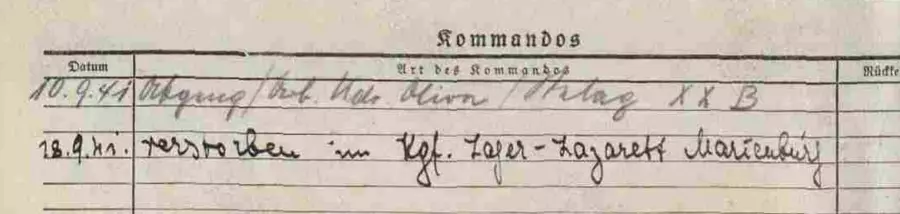 Kommandos
Datum Art des Kommandos Rückke
10.9.41 Abgang/Arb. Kdo. Oliva / Stalag XX B
28.9.41. verstorben im Kgf. Lager-Lazarett Marienburg